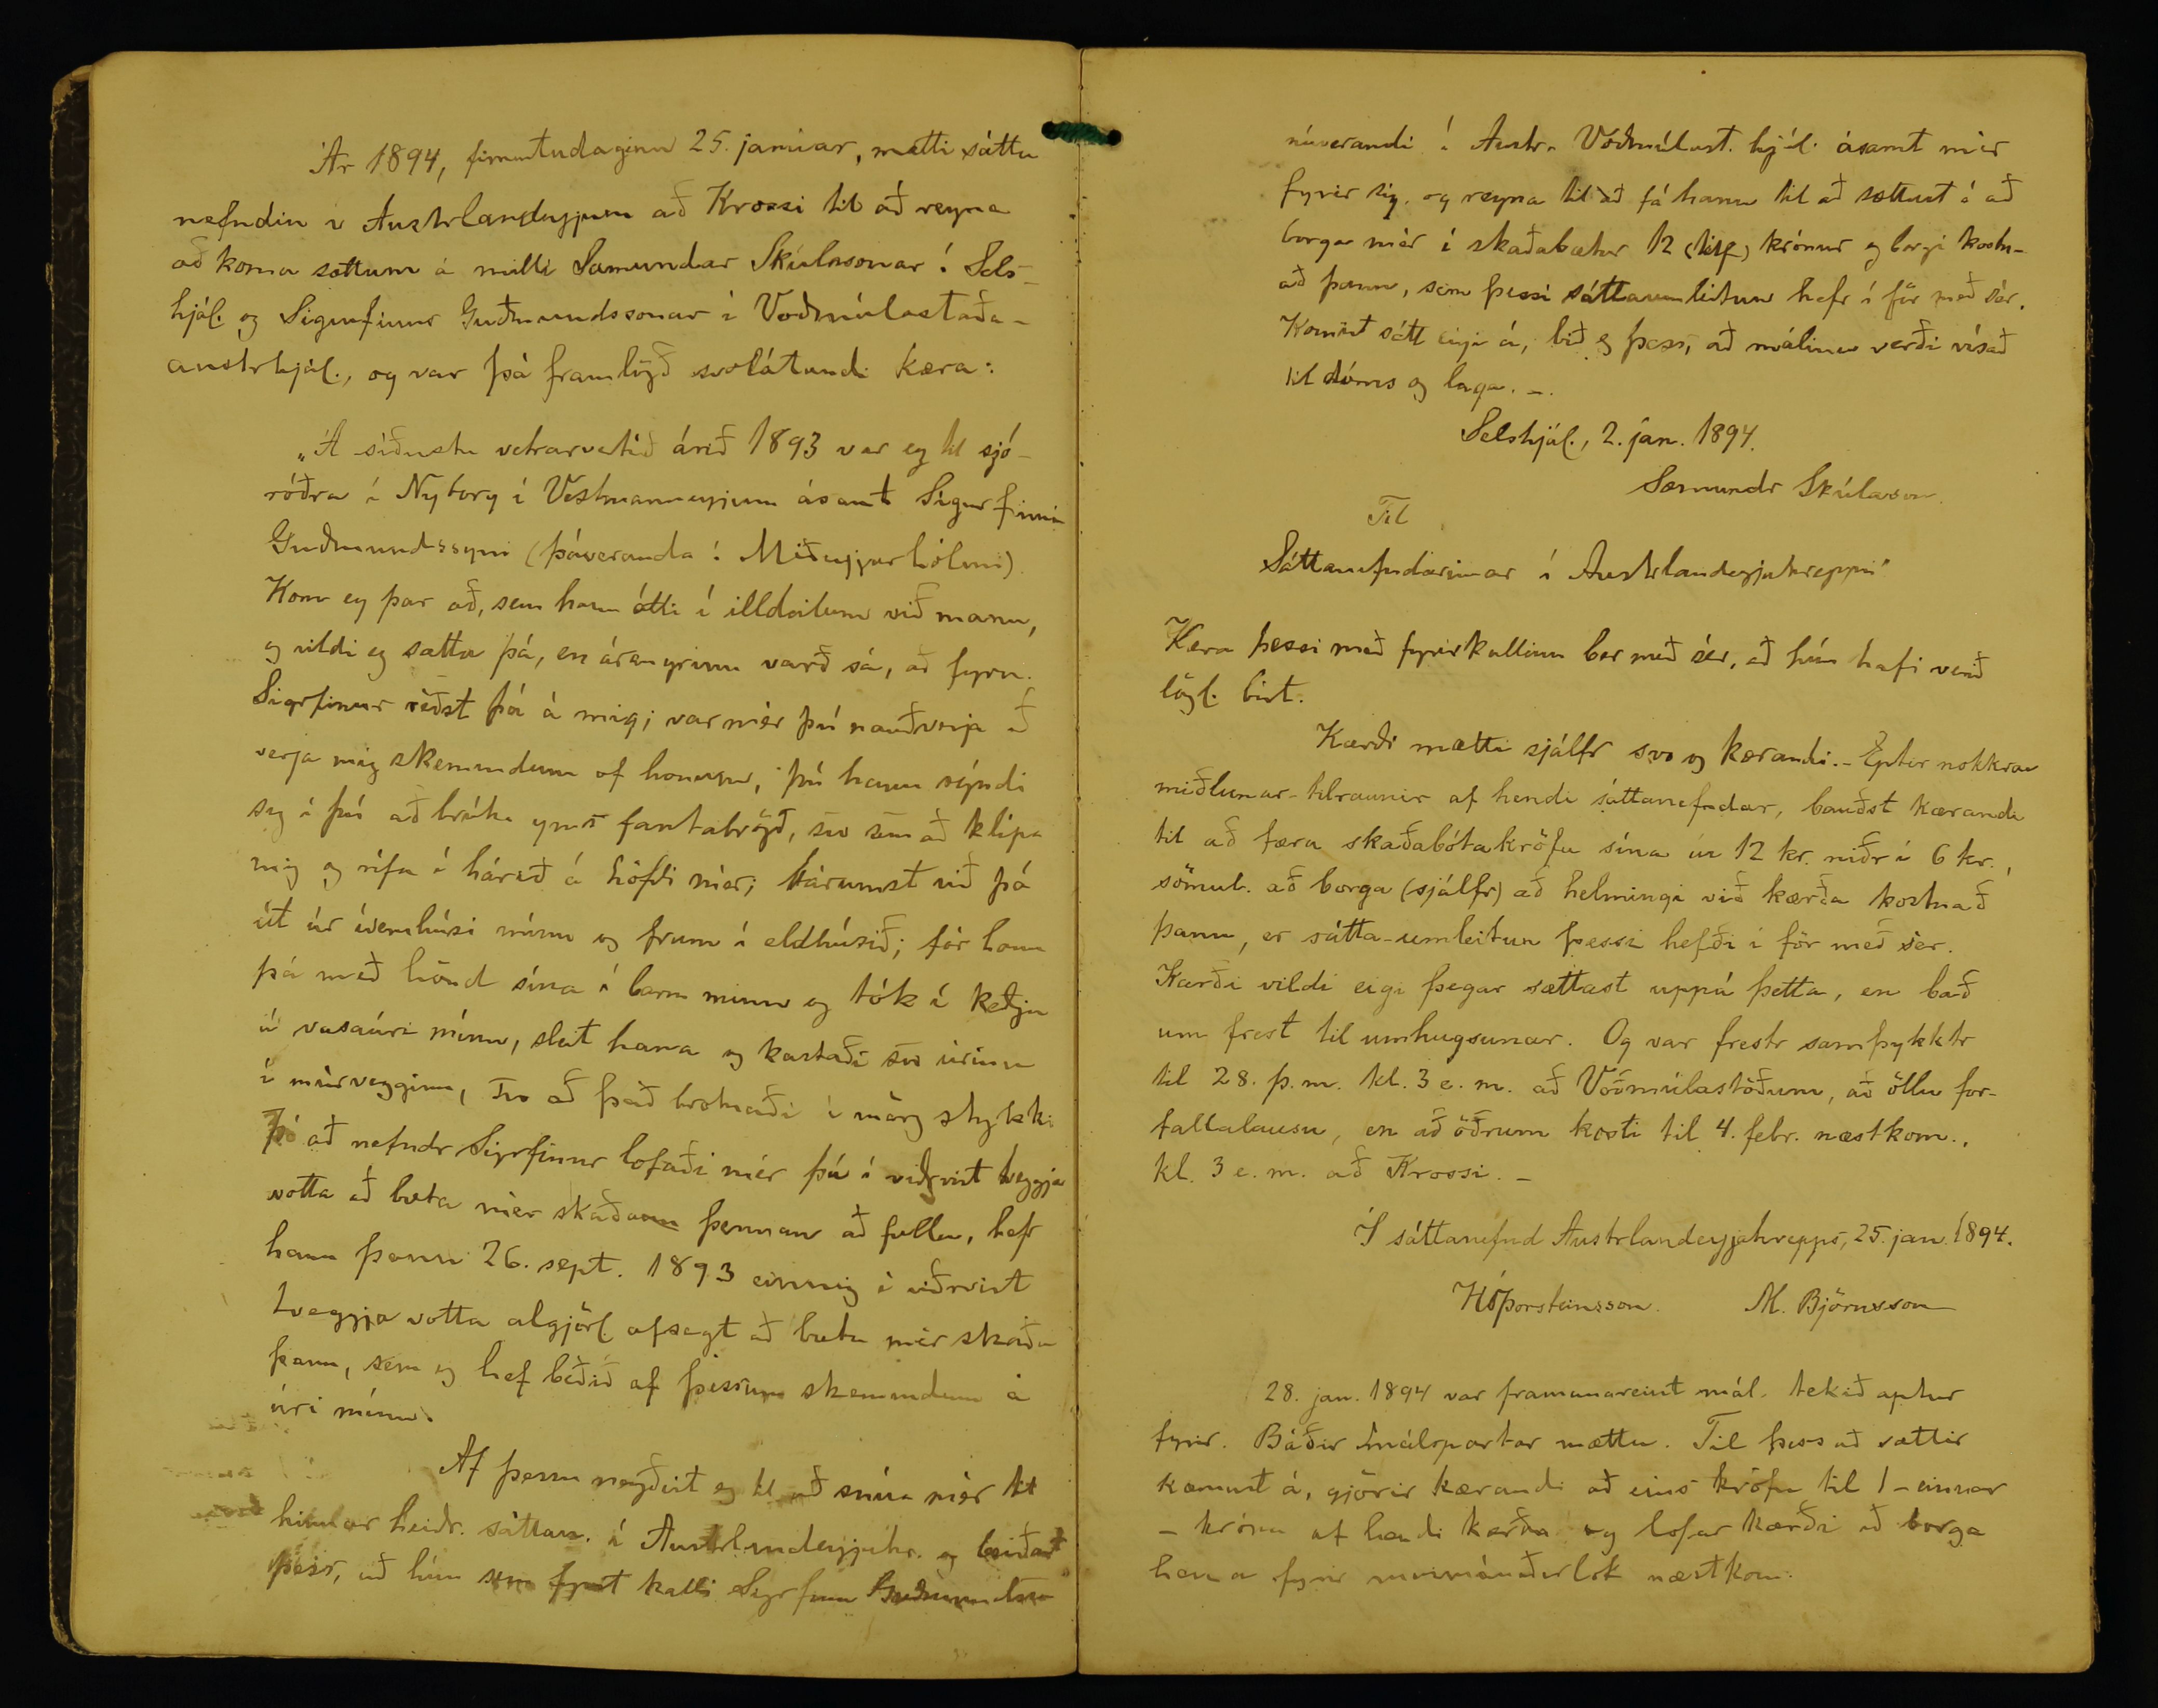 Ár 1894, fimmtudaginn 25. janúar, mætti sátta
nefndin í Austrlandeyjum að Krossi til að reyna
að koma sættum á milli Sæmundar Skúlasonar í Sels-
hjál. og Sigurfinns Guðmundssonar í Voðmúlastaða-
austrhjál., og var þá framlögð svolátandi kæra:
„Á síðustu vetrarvertíð árið 1893 var eg til sjó-
róðra í Nyborg í Vestmannaeyjum ásamt Sigurfinni
Guðmundssyni (þáveranda í Miðeyjarhólmi).
Kom eg þar að, sem hann átti í illdeilum við mann,
og vildi eg sætta þá, en árangrinn varð sá, að fyrn.
Sigrfinnur réðst þá á mig; var mér því nauðvörn að
verja mig skemmdum af honum, því hann sýndi
sig í því að brúka yms fantabrögð, svo sem að klípa
mig og rífa í hárið á höfði mér; bárumst við þá
út úr íveruhúsi mínu og fram í eldhúsið; fór hann
þá með hönd sína í barm minn og tók í keðju
á vasaúri mínu, sleit hana og kastaði svo úrinu
í múrvegginn, svo að það brotnaði í mörg stykki.
Þó að nefndr Sigrfinnur lofaði mér því í viðrvist tveggja
votta að bæta mér skaðann þennan að fullu, hefr
hann þann 26. sept. 1893 einnig í viðrvist
tveggja votta algjörl. afsagt að bæta mér skaða
þann, sem eg hef beðið af þessum skemmdum á
úri mínu.
Af þessu neyðist eg til að snúa mér til
hinnar heiðr. sáttan. í Austrlandeyjahr. og beiðast
þess, að hún sem fyrst kalli Sigrfinn Guðmundsson
núverandi í Austr. Voðmúlast. hjál. ásamt mér
fyrir sig, og reyna til að fá hann til að sættast á að
borga mér í skaðabætur 12 (tólf) krónur og borgi kostn-
að þann, sem þessi sáttaumleitun hefr í för með sér.
Komist sátt eigi á, bið eg þess, að málinu verði vísað
til dóms og laga. –.
Selshjál., 2. jan. 1894.
Sæmundr Skúlason.
Til
Sáttanefndarinnar í Austrlandeyjahreppi“
Kæra þessi með fyrirkallinu ber með sér, að hún hafi verið
lögl. birt.
Kærði mætti sjálfr svo og kærandi. – Eptir nokkrar
miðlunar-tilraunir af hendi sáttanefndar, bauðst kærandi
til að færa skaðabótakröfu sína úr 12 kr. niðr í 6 kr.,
sömul. að borga (sjálfr) að helmingi við kærða kostnað
þann, er sátta-umleitun þessi hefði í för með sér.
Kærði vildi eigi þegar sættast uppá þetta, en bað
um frest til umhugsunar. Og var frestr samþykktr
til 28. þ.m. kl. 3 e.m. að Voðmúlastöðum, að öllu for-
fallalausu, en að öðrum kosti til 4. febr. næstkom.,
kl. 3 e.m. að Krossi. –
Í sáttanefnd Austrlandeyjahrepps, 25. jan. 1894.
HÓÞorsteinsson. M. Björnsson
28. jan. 1894 var framanareint mál. tekið aptur
fyrir. Báðir málspartar mættu. Til þess að sættir
kæmust á, gjörir kærandi að eins kröfu til 1 – einnar
– krónu af hendi kærða og lofar kærði að borga
hana fyrir mánaðarlok næstkom.